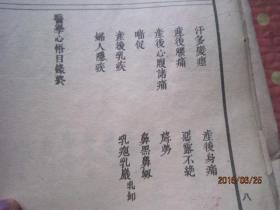 汗多變痙
產後身痛
產後腰痛
惡露不絕
產後心腹諸痛
蓐勞
喘促
鼻黑鼻衂
產後乳疾
乳癰乳巖
乳卸
婦人隱疾
醫學心悟目錄終
八
2016/03/25